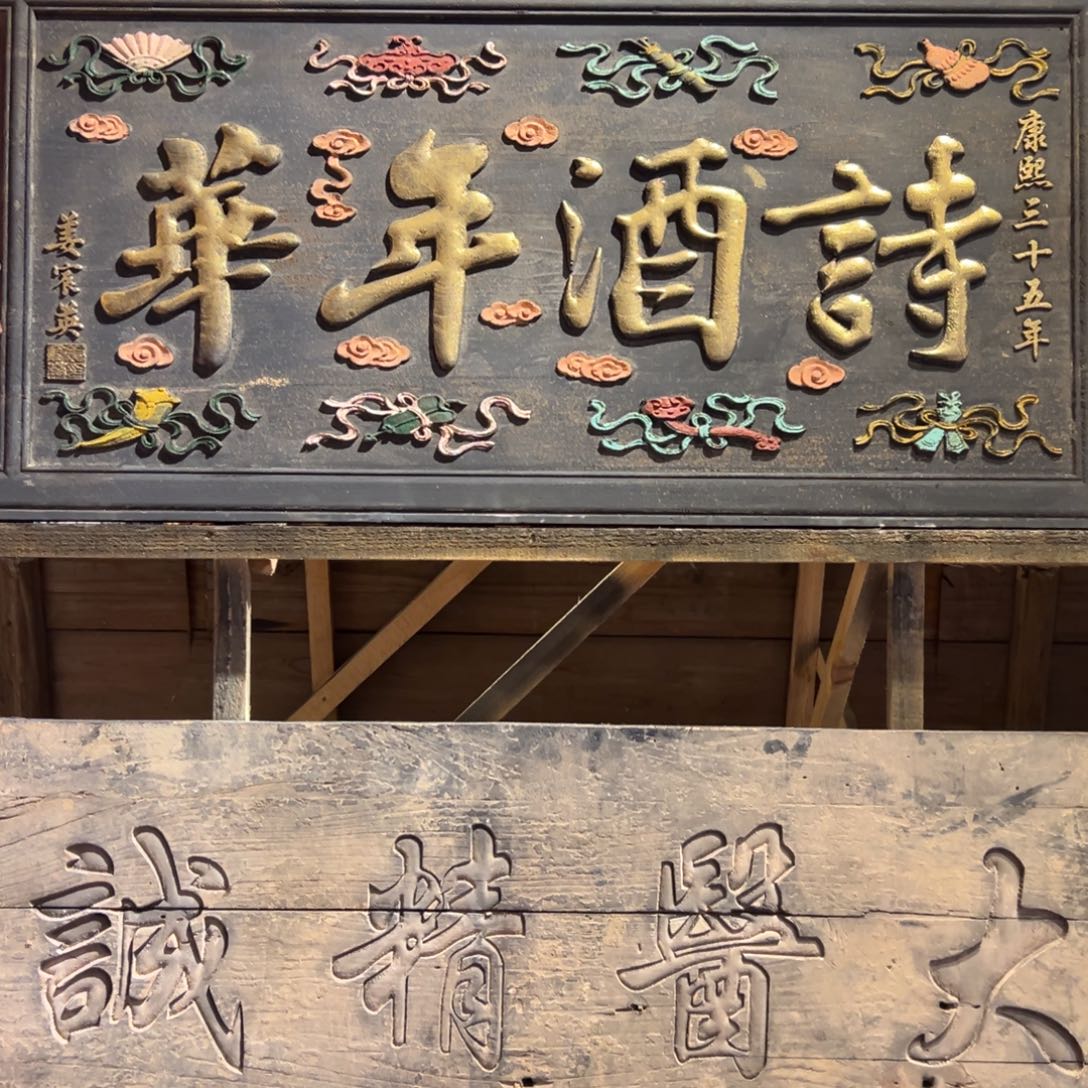 康熙三十五年
詩酒年華
姜宸英
大醫精誠